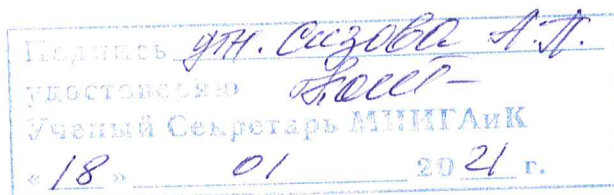 Подпись утн. Сизова А.П.
удостоверяю
Ученый Секретарь МИИГАиК
« 18 » 01 20 21 г.